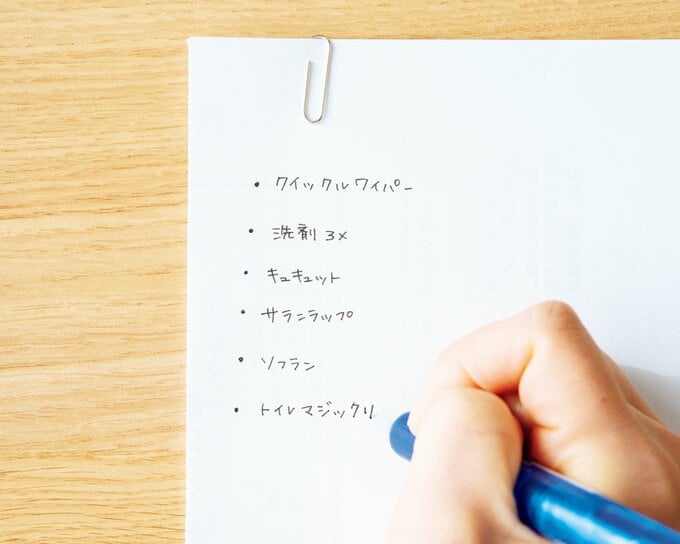 ・クイックルワイパー
・洗剤 3×
・キュキュット
・サランラップ
・ソフラン
・トイレマジックリ